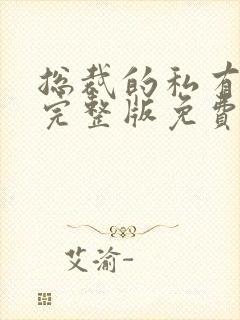 总裁的私有
完整版免費
艾渝-